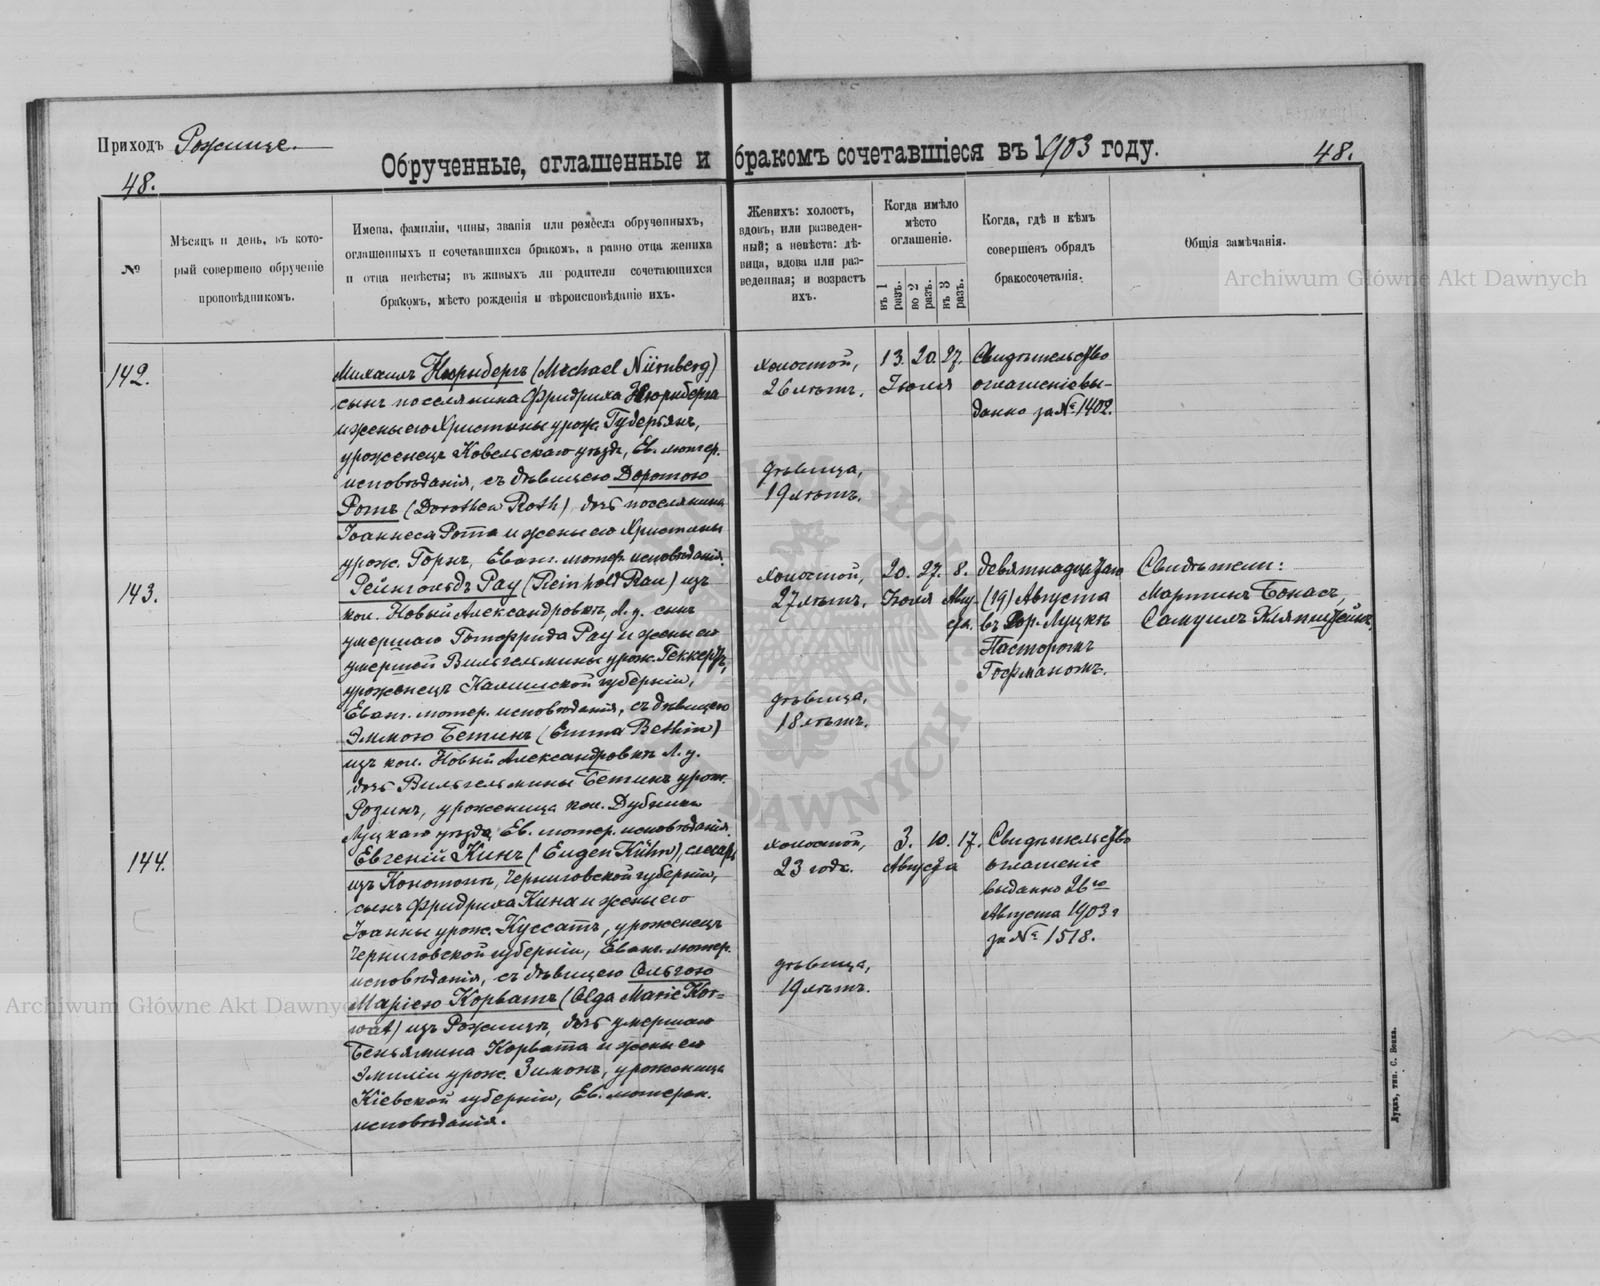 Приходъ Рожище.
Обрученные, оглашенные и бракомъ сочетавшіеся въ 1903 году.
48.
48.
№
Мѣсяцъ и день, въ кото-
рый совершено обрученіе
проповѣдникомъ.
Имена, фамиліи, чины, званія или ремесла обрученныхъ,
оглашенныхъ и сочетавшихся бракомъ, а равно отца жениха
и отца невѣсты; въ живыхъ ли родители сочетающихся
бракомъ, мѣсто рожденія и вѣроисповѣданіе ихъ.
Женихъ: холостъ,
вдовъ, или разведен-
ный; а невѣста: дѣ-
вица, вдова или раз-
веденная; и возрастъ
ихъ.
Когда имѣло
мѣсто
оглашеніе.
въ 1
разъ.
во 2
разъ.
въ 3
разъ.
Когда, гдѣ и кѣмъ
совершенъ обрядъ
бракосочетанія.
Общія замѣчанія.
142.
Михаилъ Нюрнбергъ (Michael Nürnberg)
сынъ поселянина Фридриха Нюрнберга
и жены его Христины урож. Губертянъ,
уроженецъ Ковельскаго уѣзда, Ев. лютер.
исповѣданія, съ дѣвицею Доротою
Ротъ (Dorothea Roth), дочь поселянина
Іоаннеса Рота и жены его Христины
урож. Горнъ, Еванг. лютер. исповѣданія.
холостой,
26 лѣтъ.
дѣвица,
19 лѣтъ.
13. 20. 27.
Іюля
Свидѣтельство
оглашеніе вы-
данно за № 1402.
143.
Рейнгольдъ Рау (Reinhold Rau) изъ
кол. Новый Александровкѣ, Л. у. сынъ
умершаго Готфрида Рау и жены его
умершей Вильгельмины урож. Геккертъ,
уроженецъ Калишской губерніи,
Еванг. лютер. исповѣданія, съ дѣвицею
Эммою Бетинъ (Emma Bethin)
изъ кол. Новый Александровкѣ Л. у.
дочь Вильгельмины Бетинъ урож.
Розинъ, уроженица кол. Дубники
Луцкаго уѣзда Ев. лютер. исповѣданія.
холостой,
27 лѣтъ,
дѣвица,
18 лѣтъ.
20. 27. 8.
Іюля Авгу-
ста.
девятнадцатаго
(19) Августа
въ гор. Луцкѣ
Пасторомъ
Гофманомъ.
Свидѣтели:
Мартинъ Бонасъ,
Самуилъ Кляпштейнъ.
144.
Евгеній Кинъ (Eugen Kühn), слесарь
изъ Конотопъ, Черниговской губерніи,
сынъ Фридриха Кина и жены его
Іоанны урож. Куссатъ, уроженецъ
Черниговской губерніи, Еванг. лютер.
исповѣданія, съ дѣвицею Ольгою
Маріею Корватъ (Olga Marie Kor=
wat) изъ Рожищъ, дочь умершаго
Беньямина Корвата и жены его
Эмиліи урож. Зимонъ, уроженица
Кіевской губерніи, Ев. лютеран.
исповѣданія.
холостой,
23 года.
дѣвица,
19 лѣтъ.
3. 10. 17.
Августа
Свидѣтельство
оглашеніе
выданно 26го
Августа 1903 г
за № 1518.
Луцкъ, тип. С. Бенка.
Archiwum Główne Akt Dawnych
Archiwum Główne Akt Dawnych